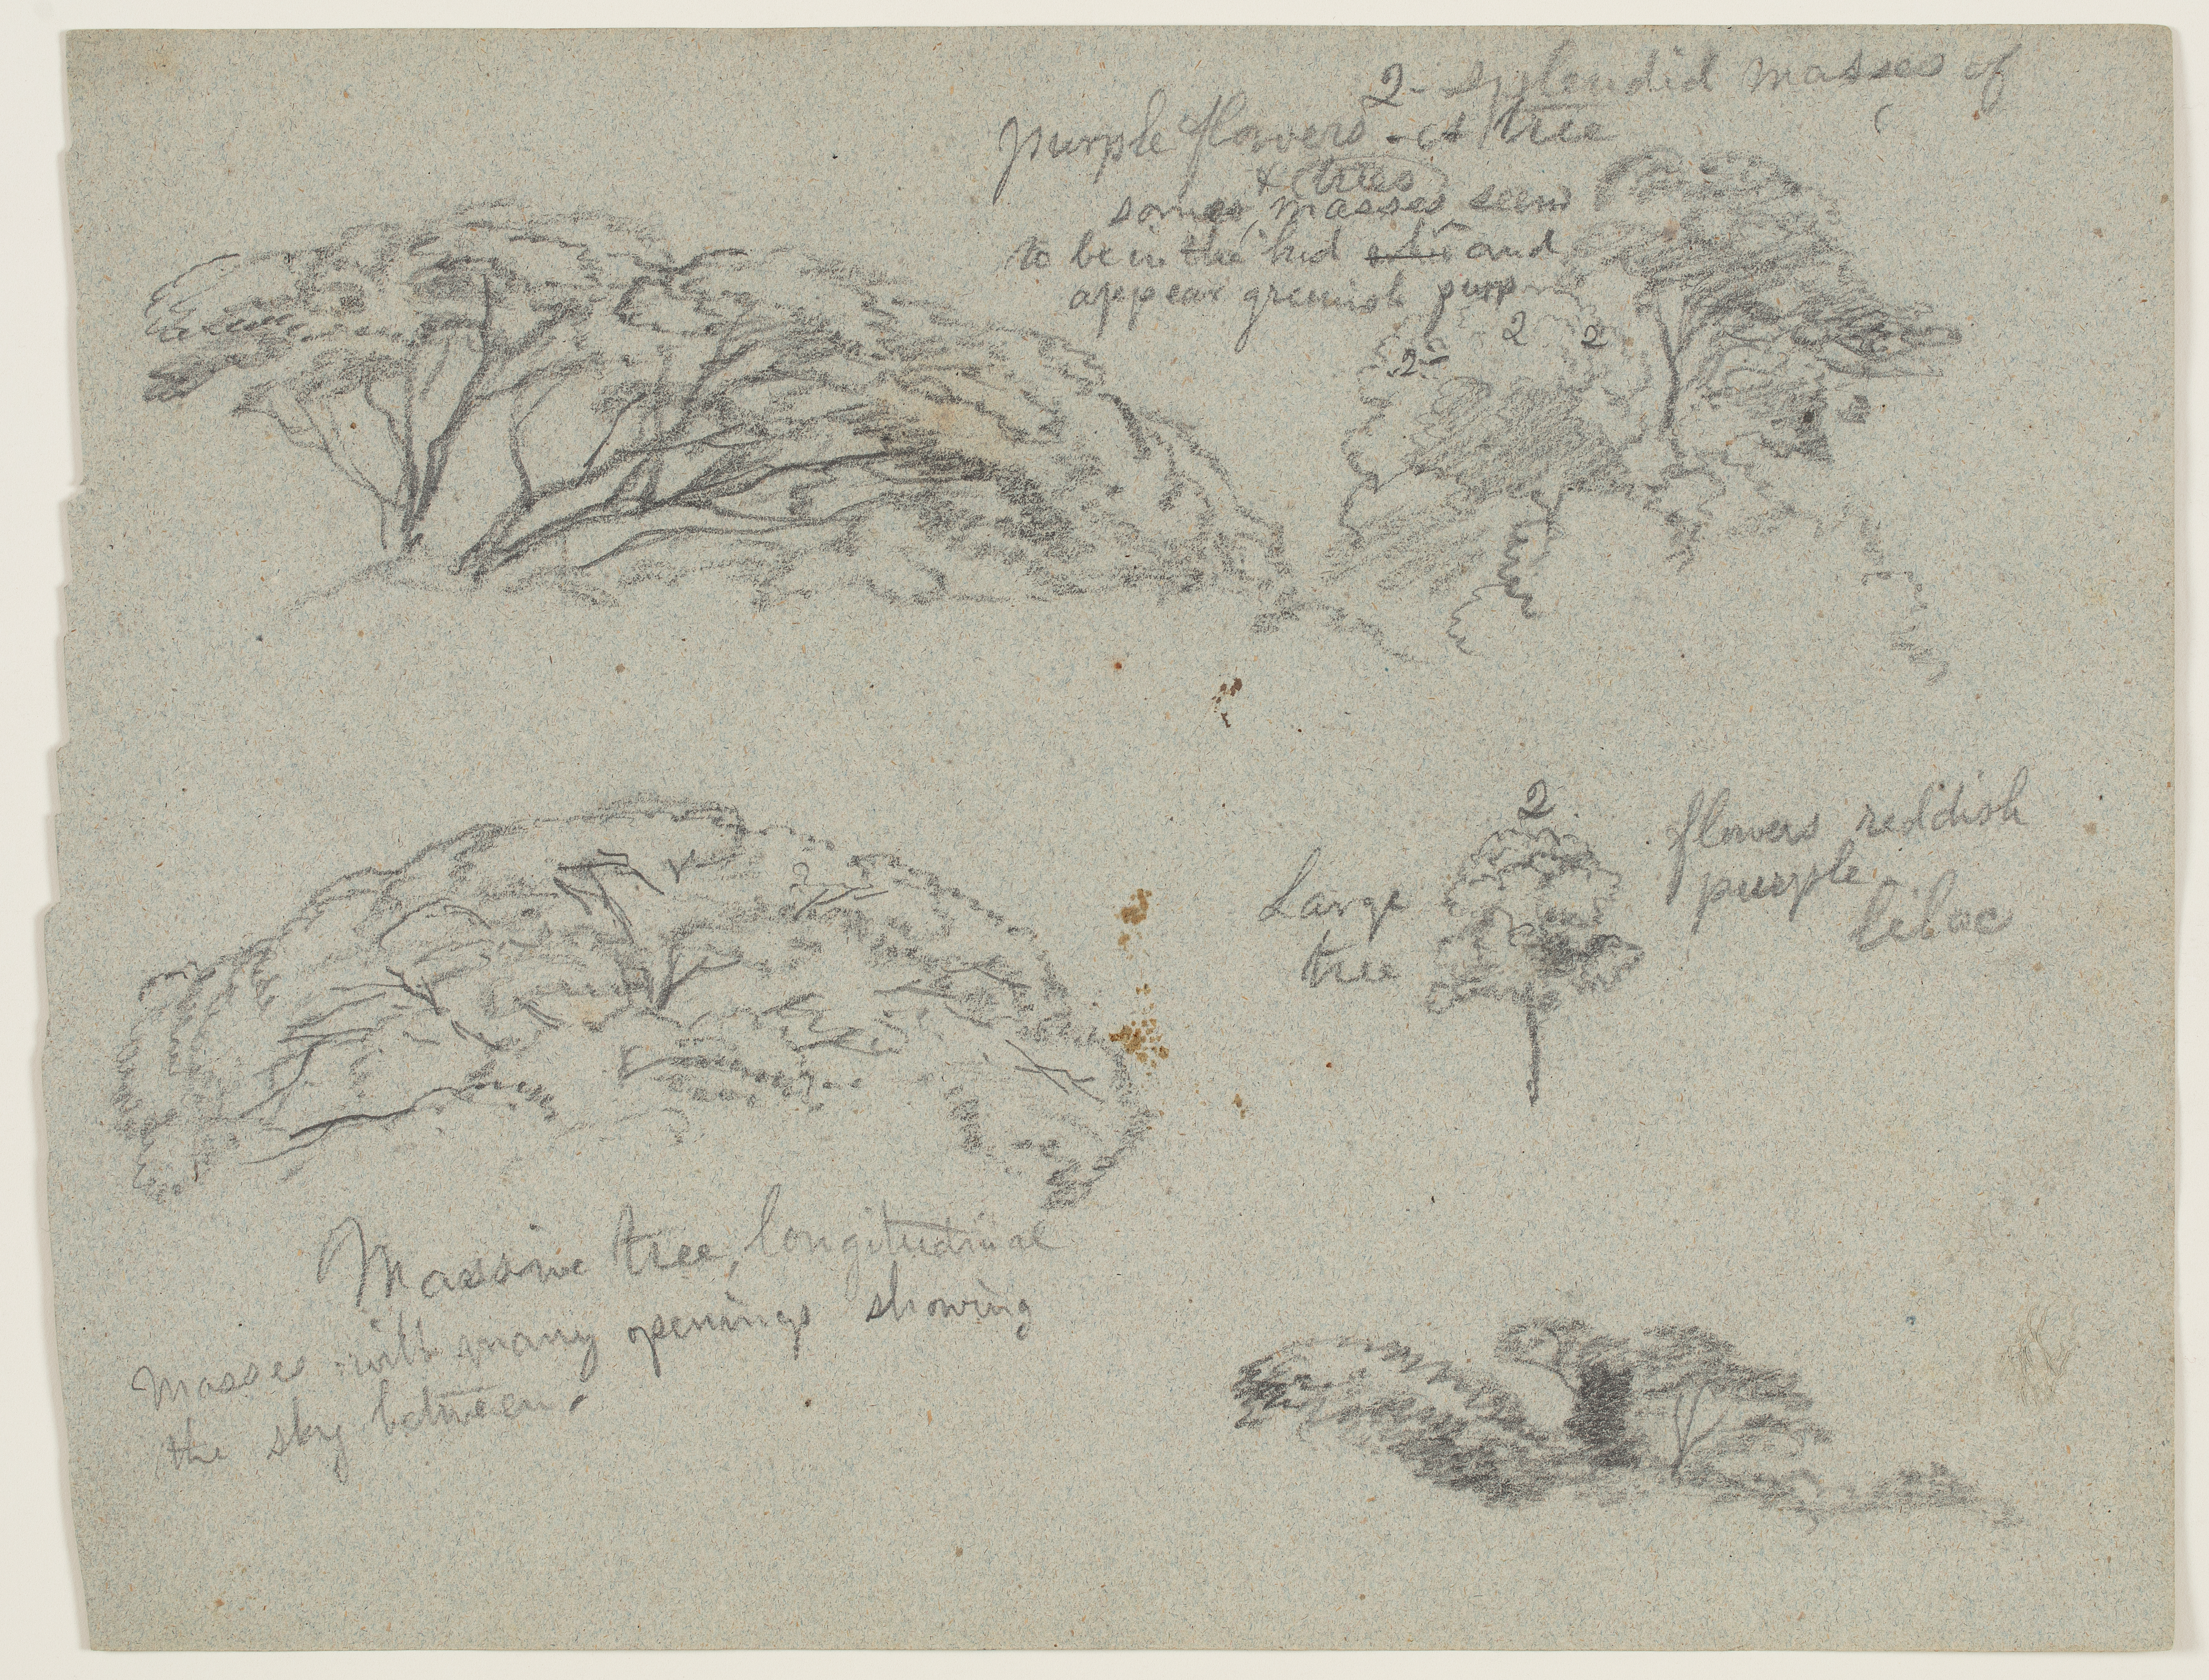 2- splendid masses of
purple flowers - tree
& trees
some masses seem
to be in the bud and
appear greenish purp
2 2
2-
2
2
2
Large
tree
flowers reddish
purple
lilac
Massive tree, longitudinal
masses with many openings showing
the sky between.